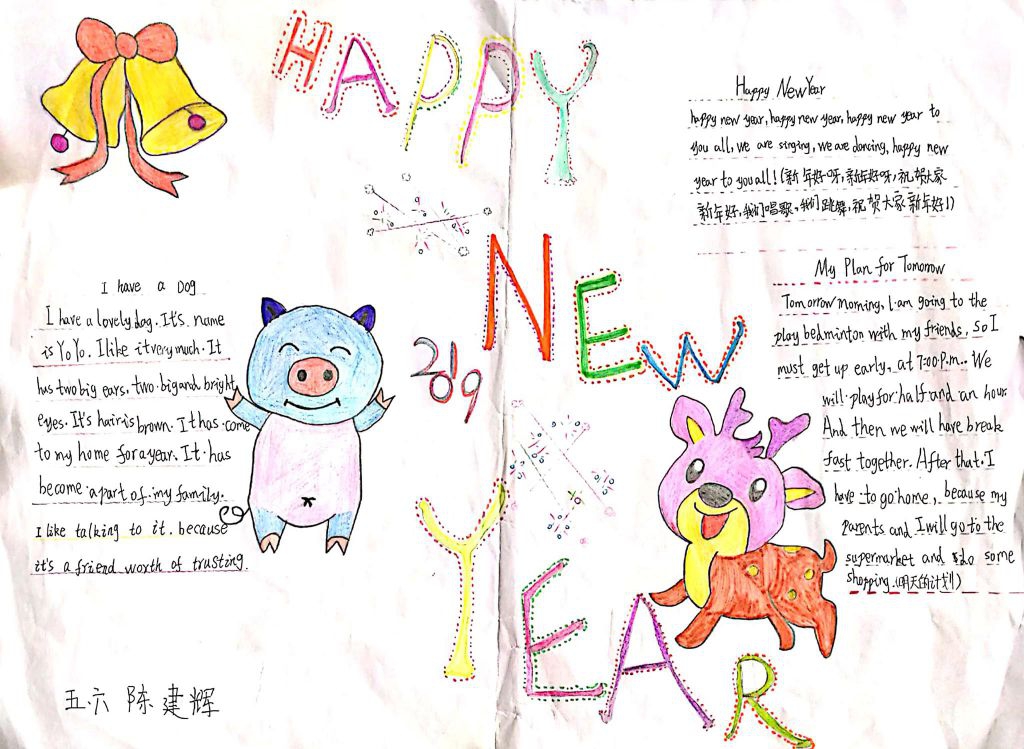 HAPPY
NEW
2019
YEAR
I have a Dog
I have a lovely dog. It's name
is YoYo. I like it very much. It
has two big ears, two big and bright
eyes. It's hair is brown. It has come
to my home for a year. It has
become a part of my family.
I like talking to it. because
it's a friend worth of trusting.
五.六 陈建辉
Happy New Year
happy new year, happy new year, happy new year to
you all, we are singing, we are dancing, happy new
year to you all! (新年好呀,新年好呀,祝贺大家
新年好,我们唱歌,我们跳舞,祝贺大家新年好!)
My Plan for Tomorrow
Tomorrow morning, I am going to the
play bedminton with my friends, so I
must get up early, at 7:00 P.m.. We
will play for half and an hour.
And then we will have break
fast together. After that. I
have to go home, because my
parents and I will go to the
supermarket and do some
shopping.(明天的计划)